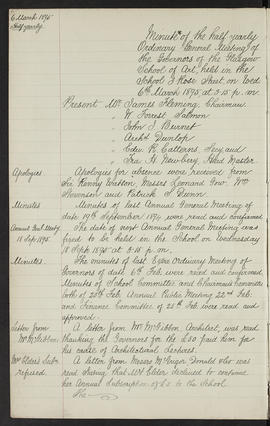 6 March 1895
Half yearly
Minute of the half yearly
Ordinary General Meeting of
the Governors of the Glasgow
School of Art, held in the
School 3 Rose Street on Wed
6th March 1895 at 3.15 p.m.
Present Mr. James Fleming Chairman
" W. Forrest Salmon
" John J. Burnet
" Archd Dunlop
" Edw. R. Catterns Secy and
" Fra H. Newbery Head Master
Apologies Apologies for absence were received from
Sir Renny Watson, Messrs Leonard Gow, Wm
Stevenson and Patrick S. Dunn
Minutes Minutes of last Annual General Meeting of
date 19th September 1894 were read and confirmed
Annual Genl Meetg The date of next Annual General Meeting was
18 Sep 1895 fixed to be held in the School on Wednesday
18 Sept 1895 at 3.15 p.m.
Minutes The minutes of last Ordinary Meeting of
Governors of date 6th Feb. were read and confirmed
Minutes of School Committee and Chairmans Committee
both of 20th Feb. Annual Public Meeting 22nd Feb.
and Finance Committee of 25th Feb were read and
approved.
Letter from A letter from Mr McGibbon, Architect, was read
Mr McGibbon thanking the Governors for the £50 paid him for
his course of Architectural Lectures.
Mrs Elders Subn A letter from Messrs McGrigor Donald &Co was
refused. read stating that Mrs Elder declined to continue
her Annual Subscription of £5 to the School
The